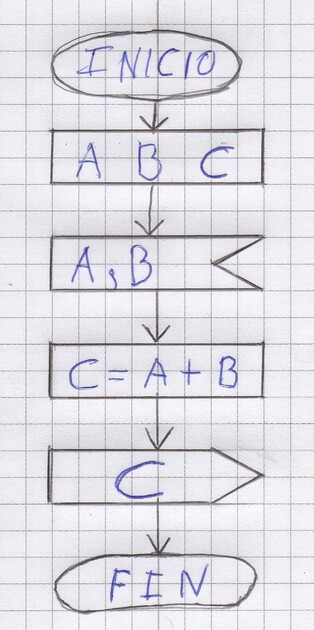 INICIO
A B C
A, B
C = A + B
C
FIN